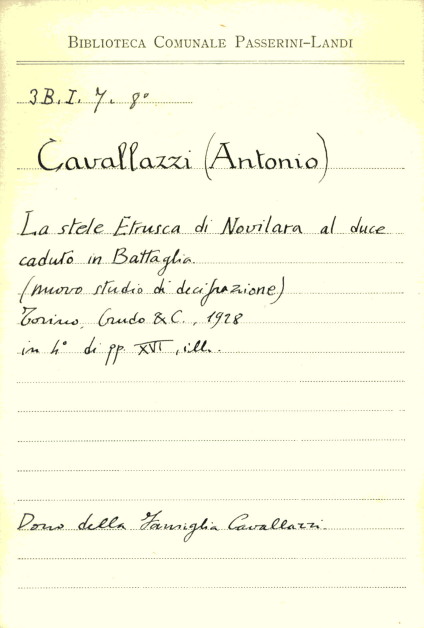 BIBLIOTECA COMUNALE PASSERINI-LANDI
3B. I. 7. 8°
Cavallazzi (Antonio)
La stele Etrusca di Novilara al duce
caduto in Battaglia.
(nuovo studio di decifrazione)
Torino, Crudo & C., 1928
in 4° di pp. XVI, ill.
Dono della Famiglia Cavallazzi.